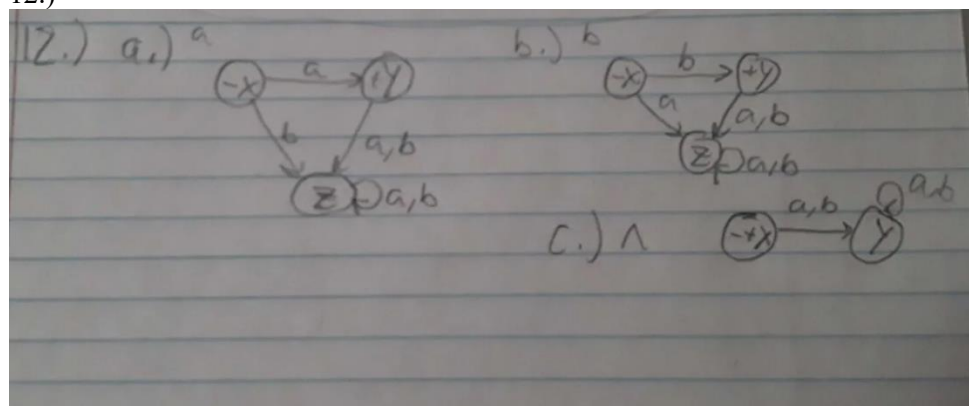 12.)
12.) a.) a
-X a +Y
b a,b
Z a,b
b.) b
-X b +Y
a a,b
Z a,b
c.) Λ
-+X a,b Y a,b